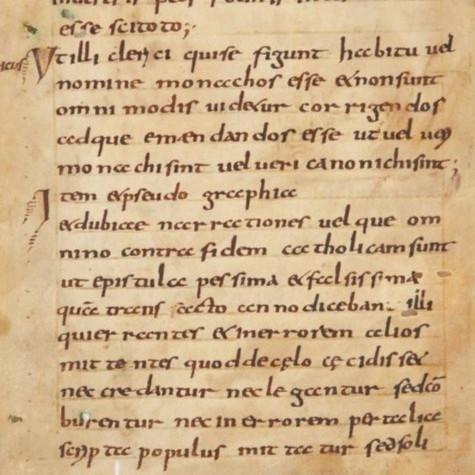 esse scitoto;
Ut illi clerici qui se figunt habitu uel
nomine monachos esse & non sunt
omnimodis uidetur corrigendos
adque emendandos esse ut uel
monachi sint uel ueri canonichi sint;
Item & pseudo graphia
& dubiae narrationes uel que om
nino contra fidem catholicam sunt
ut epistula pessima & falsissima
quā transacto anno diceban illi
qui errantes & in errorem alios
mittentes quod de cęlo cęcidiss&
nec credantur nec legantur sed cō
burentur nec in errorem per talia
scripta populus mittatur sed soli